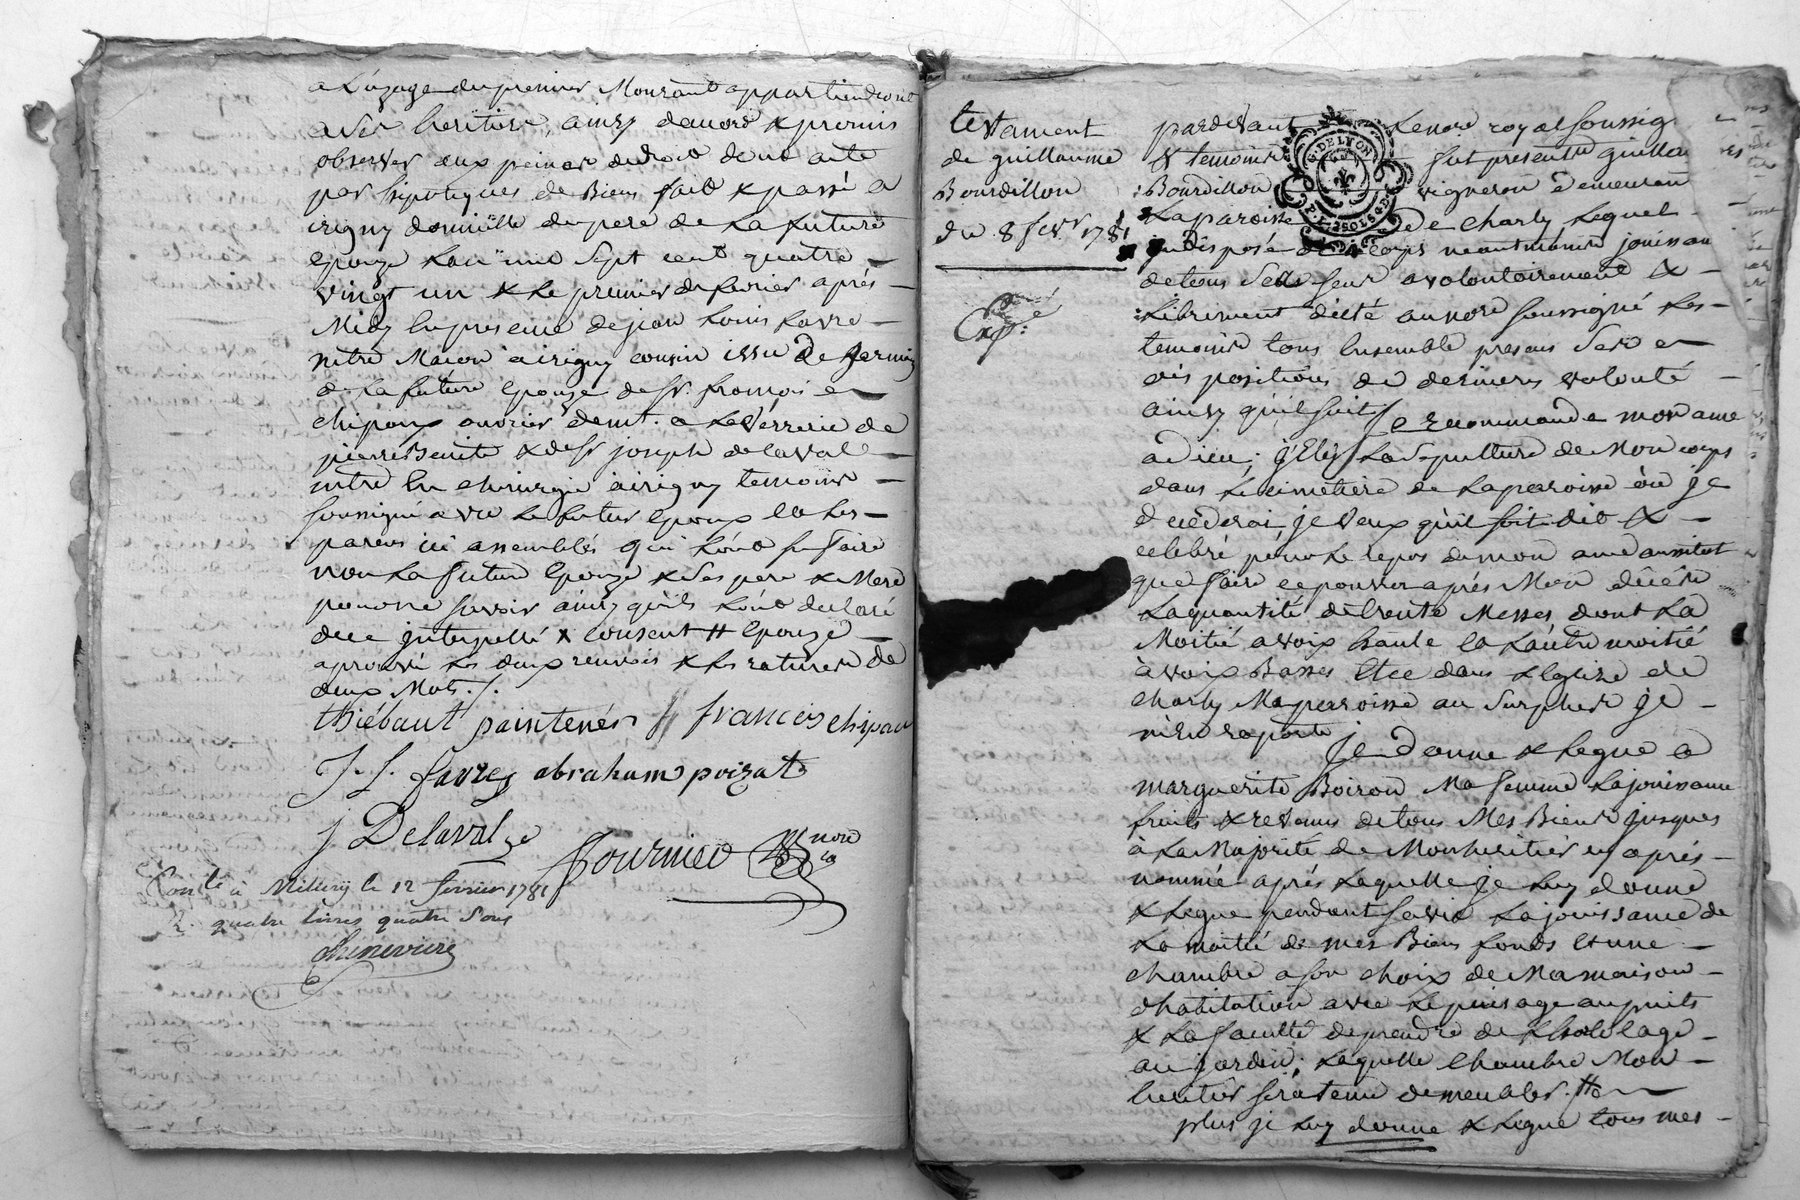 a L'uzage du premier Mourant appartiendront
a Ses heritiers, ainsy d'accord & promis
observer aux peines de droit dont acte
par hipoteques de Biens fait & passé a
irigny domicille du pere de La future
Epouze L'an mil Sept cent quatre
vingt un & Le premier de fevrier après
Midy En presence de jean Louis favre
mtre Macon a irigny cousin issu De germain
de La future Epouze de Sr. francois
chipaux ouvrier demt. a La Verrerie de
pierre Benite & de Sr joseph delaval
mtre En chirurgie a irigny temoins
Soussignés avec Le futur Epoux et Les
parens ici assemblés qui L'ont su faire
non La future Epouze & Ses pere & Mere
pour ne Savoir ainsy qu'ils L'ont declaré
de ce interpellé & consent # Epouze
aprouvé Les deux renvois & Les ratures de
deux Mots./.
thiébaut paintenés francois chipau
J. L. favre abraham poizat
J Delaval
fournier nore
Conlé à Millery le 12 fevrier 1781
R. quatre livres quatre Sous
Chenevière
testament
de guillaume
Bourdillon
du 8 fevr 1781
Expé
pardevant Le nore royal Soussig
& temoins fut present guillau
Bourdillon vigneron demeurant
La paroisse De charly Lequel
indisposé de corps neantmoins jouissan
de tous Ses Sens a volontairement &
Librement dicté au nore Soussigné Les
temoins tous Ensemble presens Ses
dispositions de derniere volonté
ainsy qu'il suit Je recommande mon ame
a Dieu; j'Elis La Sepulture de Mon corps
dans Le cimetiere de La paroisse où je
decederai, je veux qu'il soit dit &
celebré pour Le repos de mon ame aussitot
que faire ce pourra après Mon décès
La quantité de trente Messes dont La
Moitié a voix haute Et L'autre moitié
à voix Basses Et ce dans L'Eglize de
charly Ma paroisse au Surplus je
m'En raporte Je Donne & Legue a
marguerite Boiron Ma femme La jouissance
fruits & revenus de tous Mes Biens jusques
à La Majorité de Mon heritier cy après
nommé après Laquelle je Luy donne
& Legue pendant Sa vie La jouissance de
La moitié de mes Biens fonds Et une
chambre a Son choix de Ma maison
d'habitation avec Le puisage au puits
& La faculté de prendre de L'hortolage
au jardin; Laquelle chambre Mon
heritier Sera tenu de meubler. #
plus je Luy donne & Legue tous mes